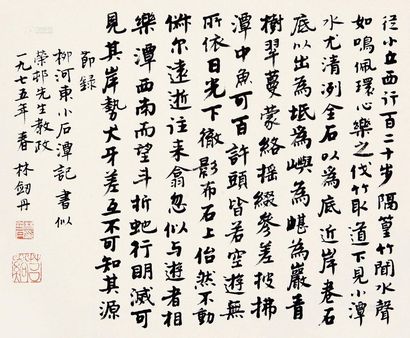 從小丘西行百二十步隔篁竹聞水聲
如鳴佩環心樂之伐竹取道下見小潭
水尤清冽全石以為底近岸卷石
底以出為坻為嶼為嵁為巖青
樹翠蔓蒙絡搖綴參差披拂
潭中魚可百許頭皆若空遊無
所依日光下徹影布石上佁然不動
俶尔遠逝往来翕忽似与遊者相
樂潭西南而望斗折蛇行明滅可
見其岸勢犬牙差互不可知其源
節錄
柳河東小石潭記書似
榮邨先生教政
一九七五年春 林劍丹